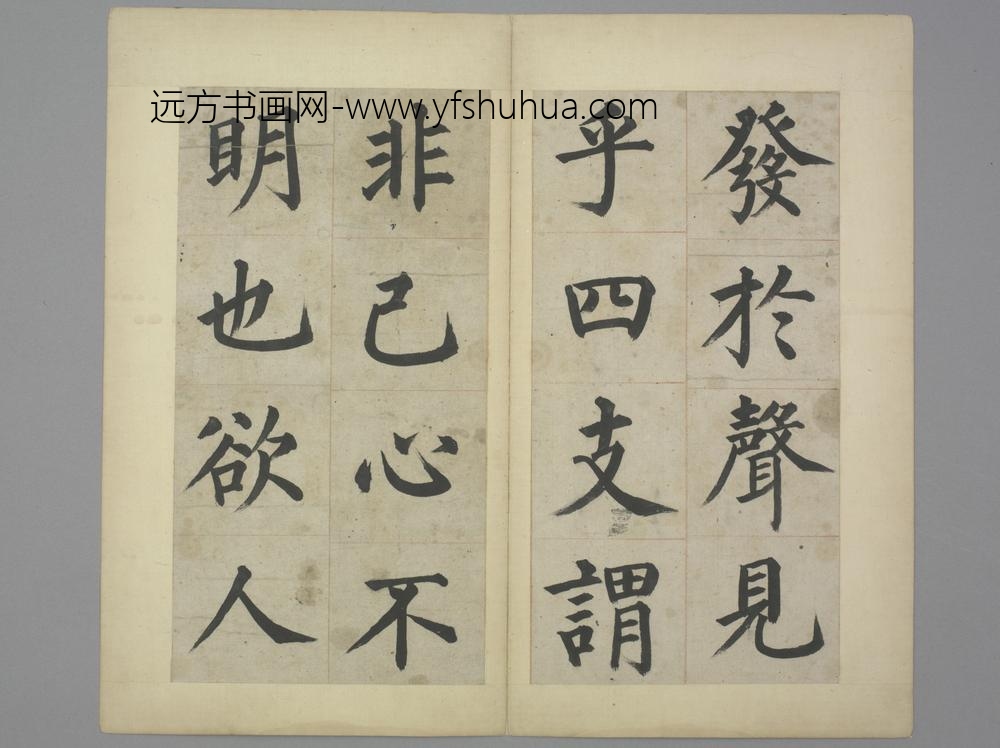 远方书画网-www.yfshuhua.com
發於聲見
乎四支謂
非己心不
明也欲人